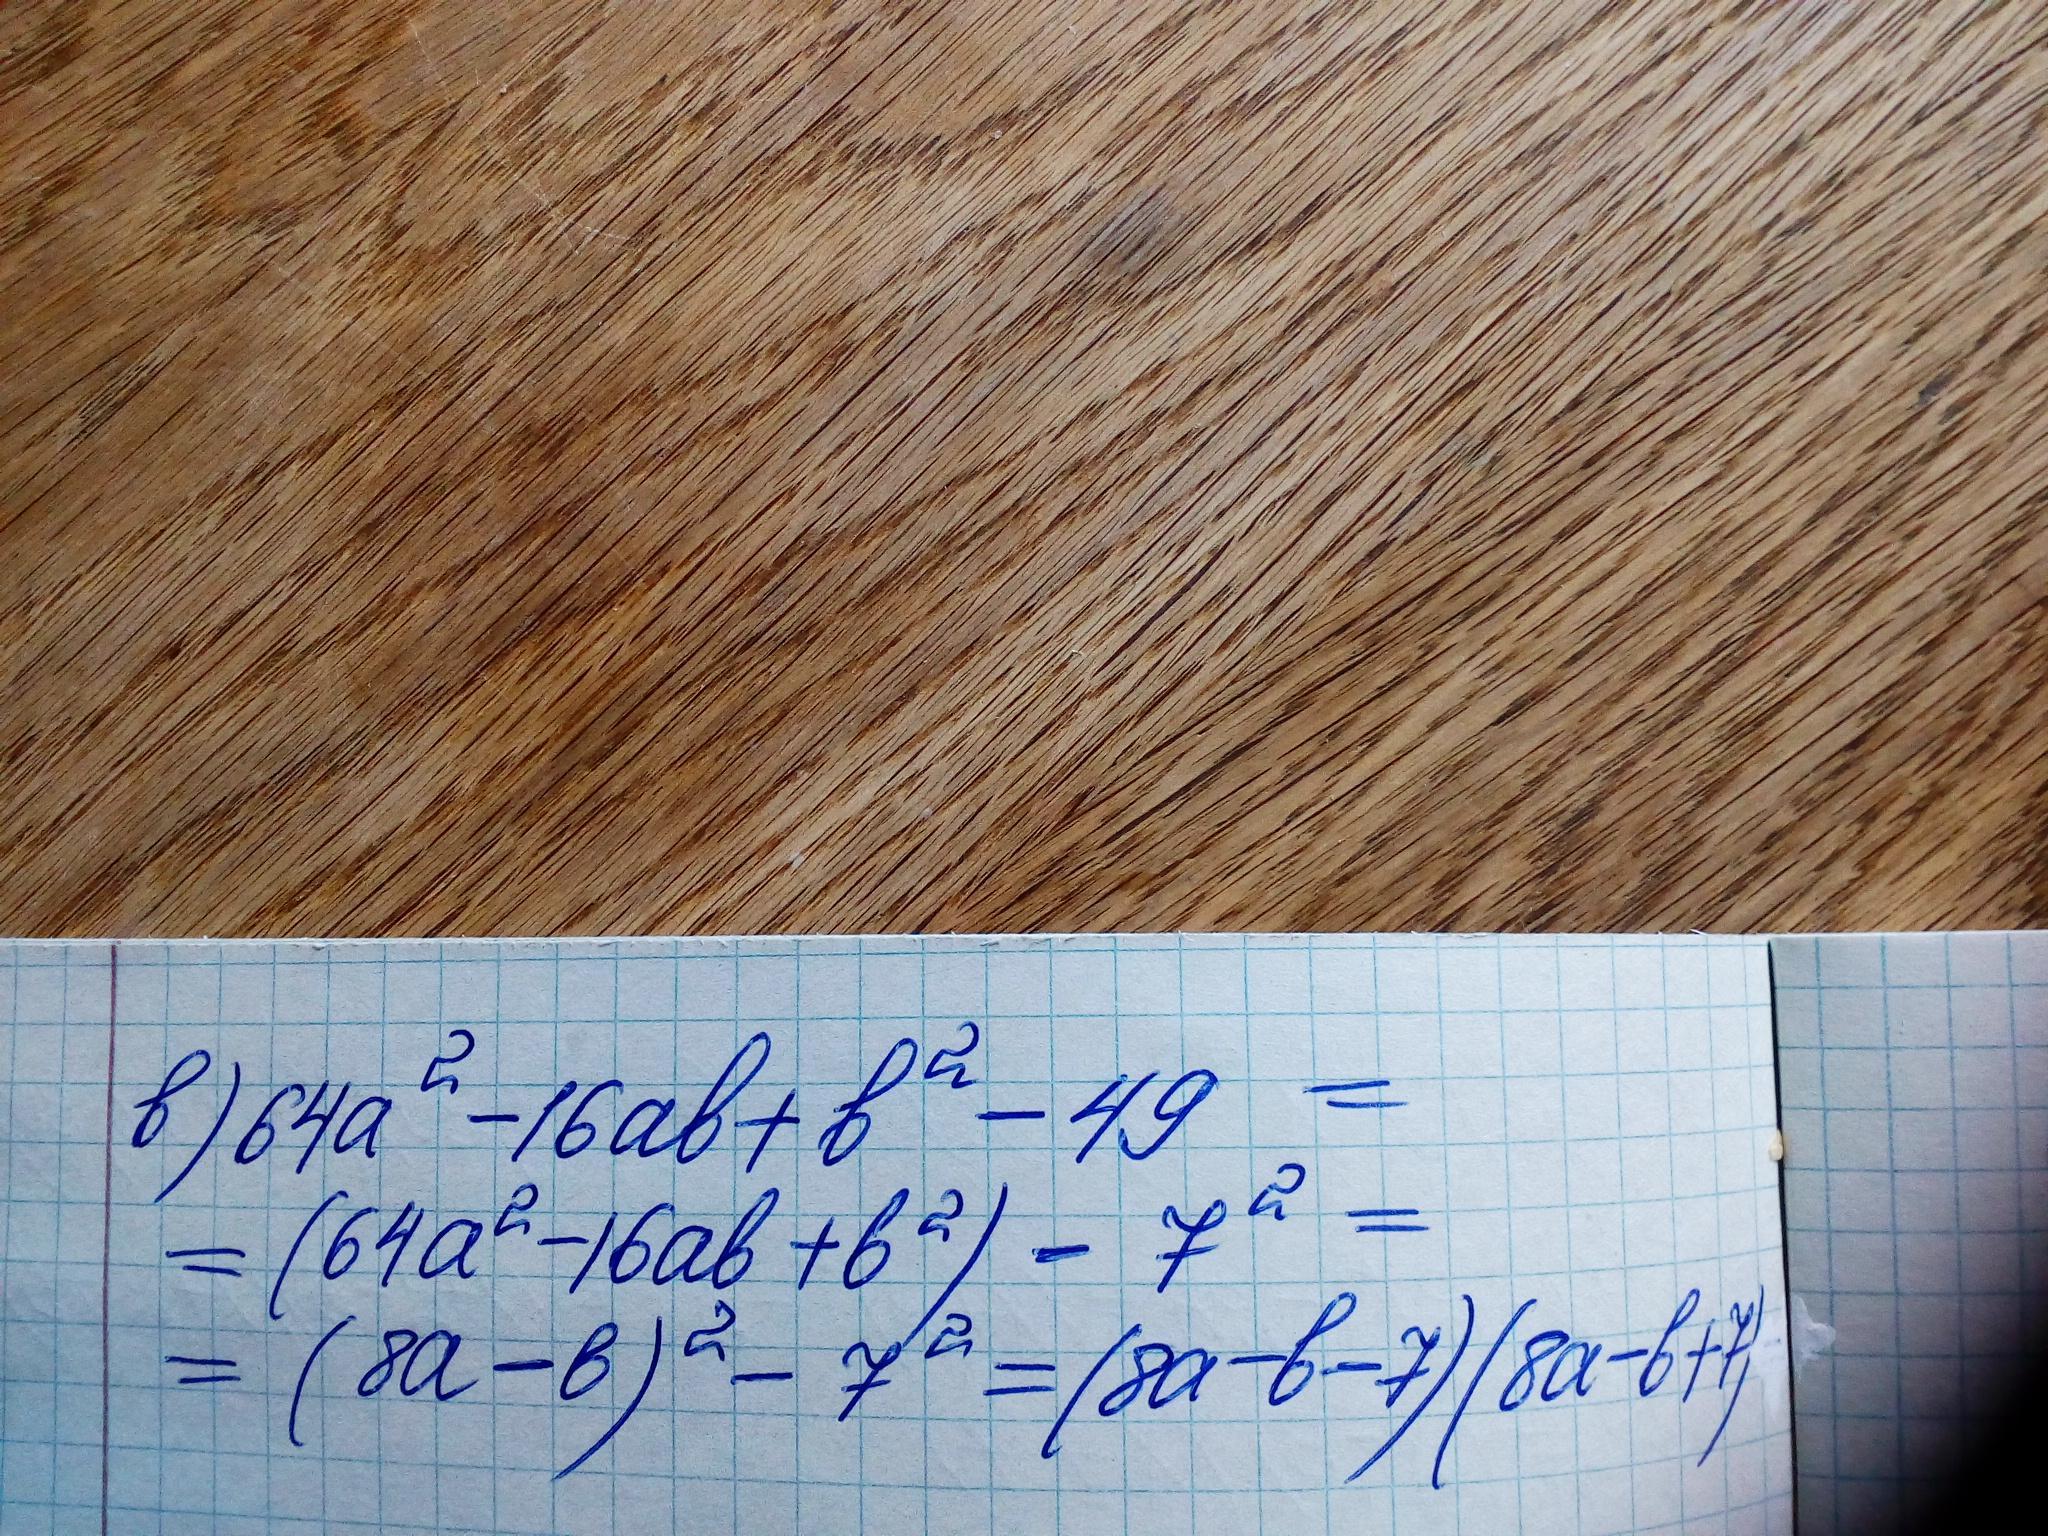 в) 64a² - 16ab + b² - 49 =
= (64a² - 16ab + b²) - 7² =
= (8a - b)² - 7² = (8a - b - 7)(8a - b + 7)